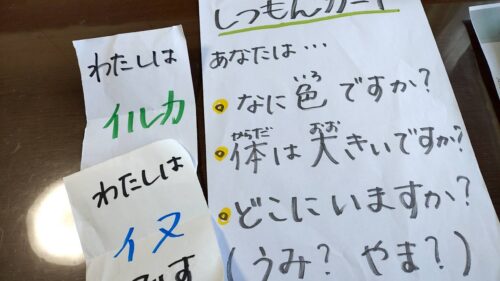 わたしは
イルカ
わたしは
イヌ
です
しつもんカード
あなたは…
なに色ですか?
いろ
体は大きいですか?
からだ
おお
どこにいますか?
(うみ? やま?)